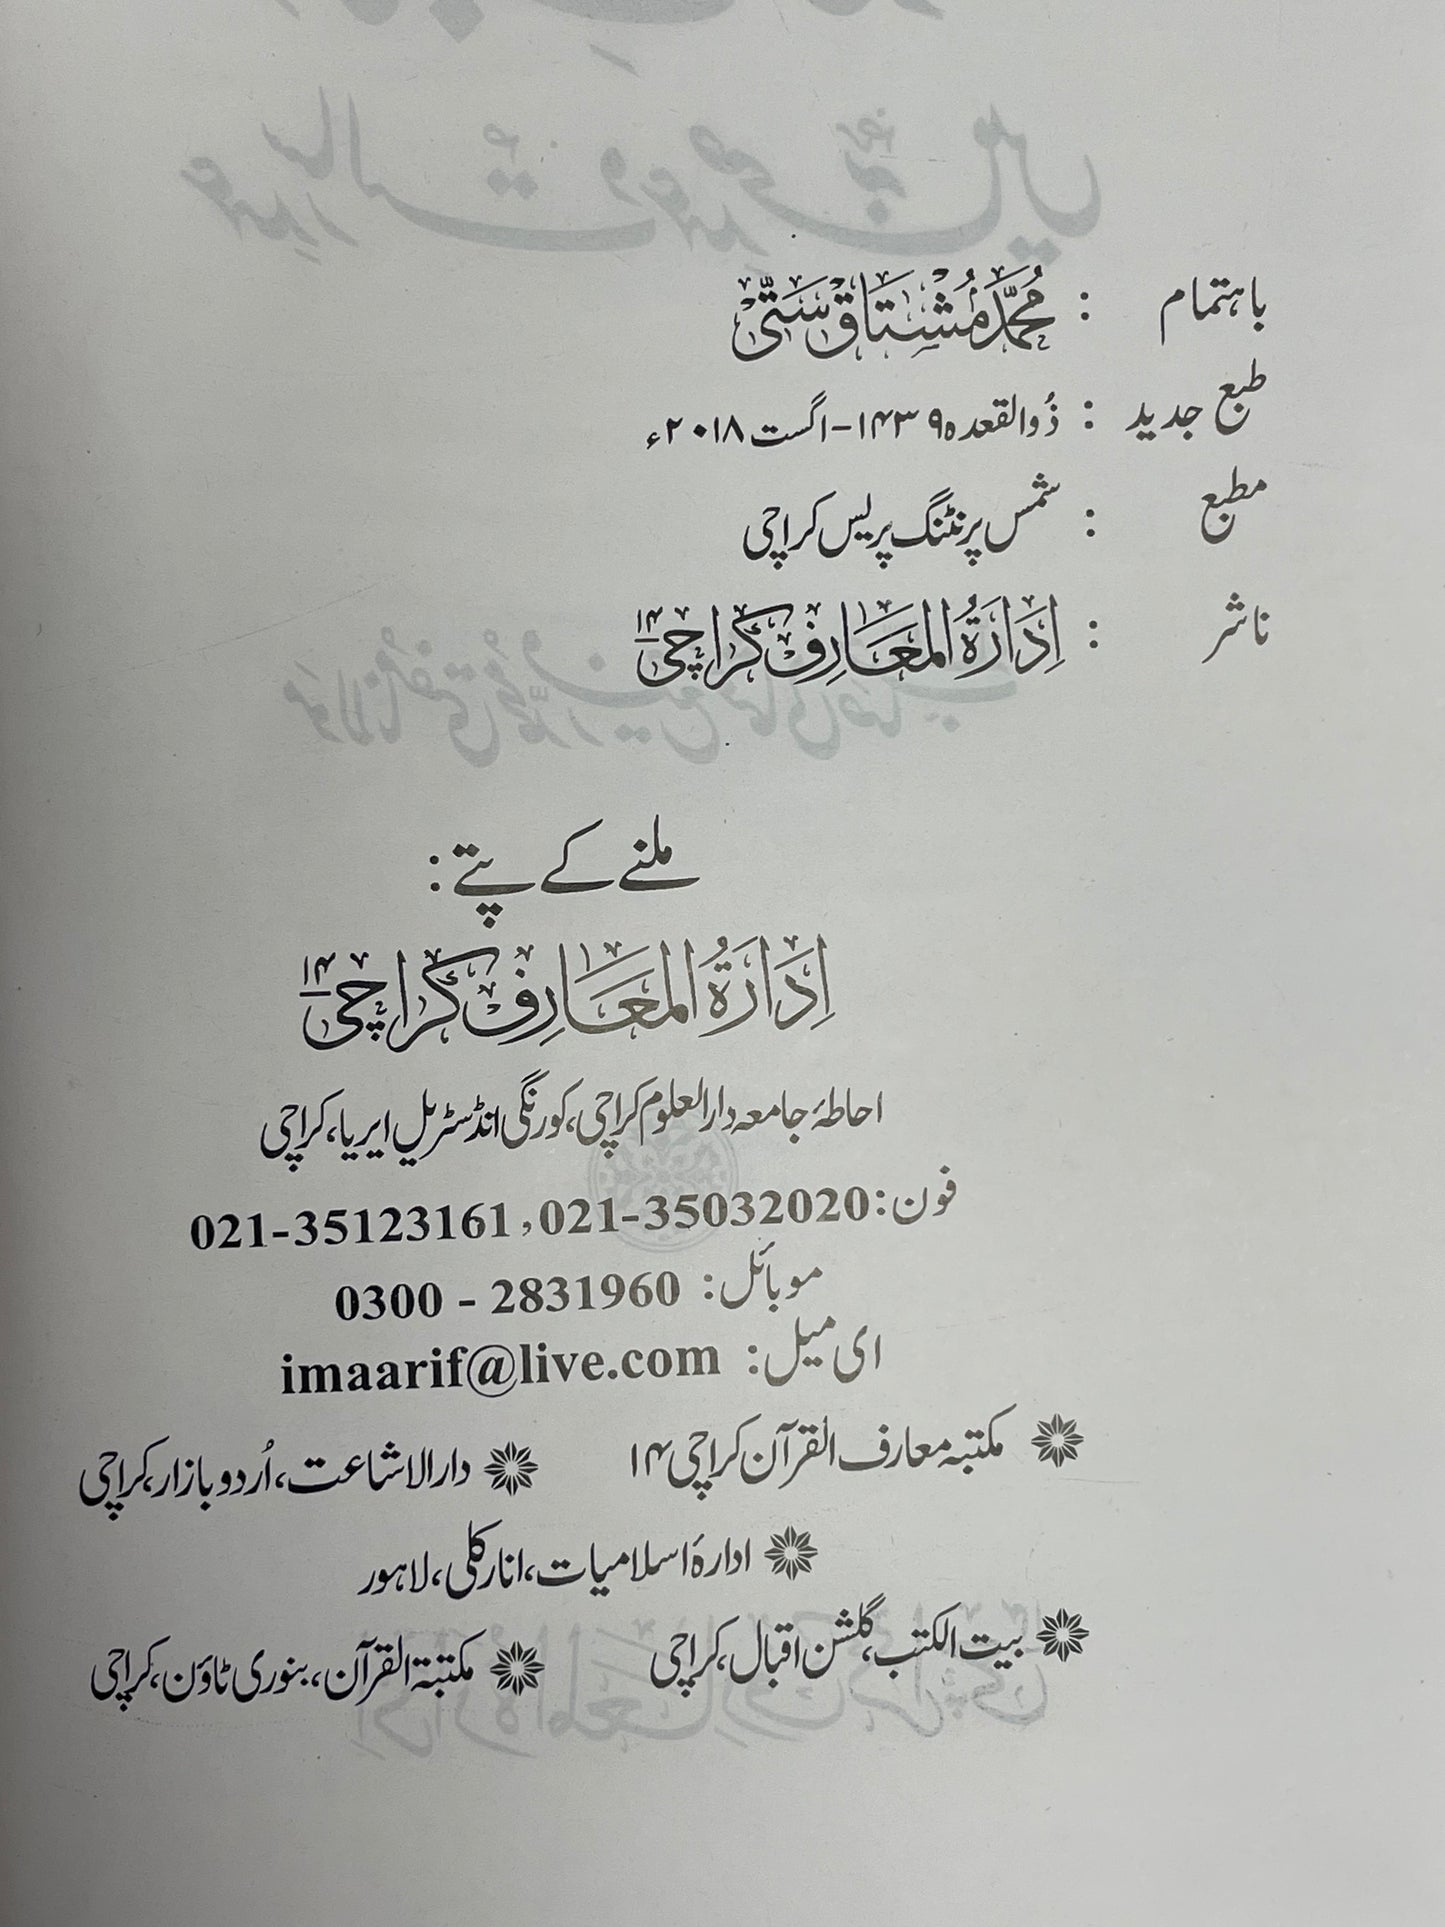 باہتمام : مُحَمَّد مُشْتَاق سَتِّی
طبع جدید : ذُوالقعدہ ۱۴۳۹ھ - اگست ۲۰۱۸ء
مطبع : شمس پرنٹنگ پریس کراچی
ناشر : اِدَارَةُ المَعَارِف کراچی ۱۴
ملنے کے پتے :
اِدَارَةُ المَعَارِف کراچی ۱۴
احاطۂ جامعہ دارالعلوم کراچی، کورنگی انڈسٹریل ایریا، کراچی
فون: 021-35123161, 021-35032020
موبائل: 0300 - 2831960
ای میل: imaarif@live.com
مکتبہ معارف القرآن کراچی ۱۴ دارالاشاعت، اُردو بازار، کراچی
ادارۂ اسلامیات، انارکلی، لاہور
بیت الکتب، گلشن اقبال، کراچی مکتبۃ القرآن، بنوری ٹاؤن، کراچی